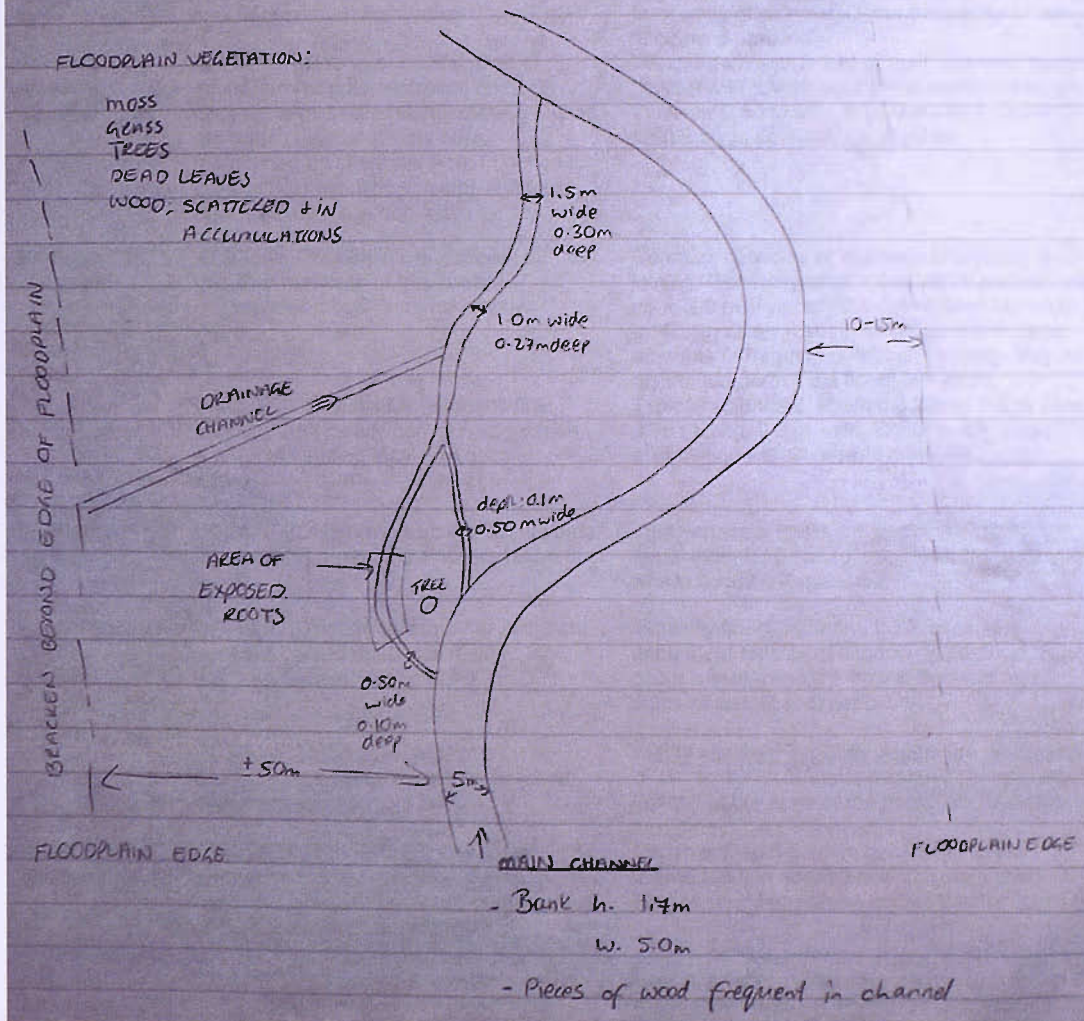 FLOODPLAIN VEGETATION:
MOSS
GRASS
TREES
DEAD LEAVES
WOOD, SCATTERED + IN
ACCUMULATIONS
1.5m
wide
0.30m
deep
1.0m wide
0.27m deep
10-15m
DRAINAGE
CHANNEL
BRACKEN BEYOND EDGE OF FLOODPLAIN
depth: 0.1m
0.50m wide
AREA OF
EXPOSED
ROOTS
TREE
0.50m
wide
0.10m
deep
±50m
5m
FLOODPLAIN EDGE
FLOODPLAIN EDGE
MAIN CHANNEL
- Bank h. 1.7m
w. 5.0m
- Pieces of wood frequent in channel